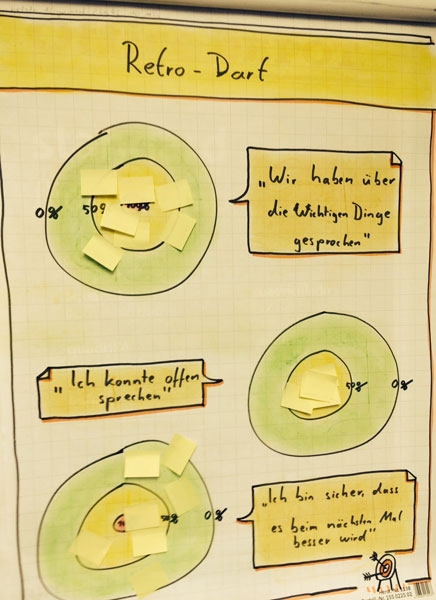 Retro-Dart
0% 50% 100%
„Wir haben über
die Wichtigen Dinge
gesprochen"
„Ich konnte offen
sprechen"
50% 0%
„Ich bin sicher, dass
es beim nächsten Mal
besser wird"
50% 0%